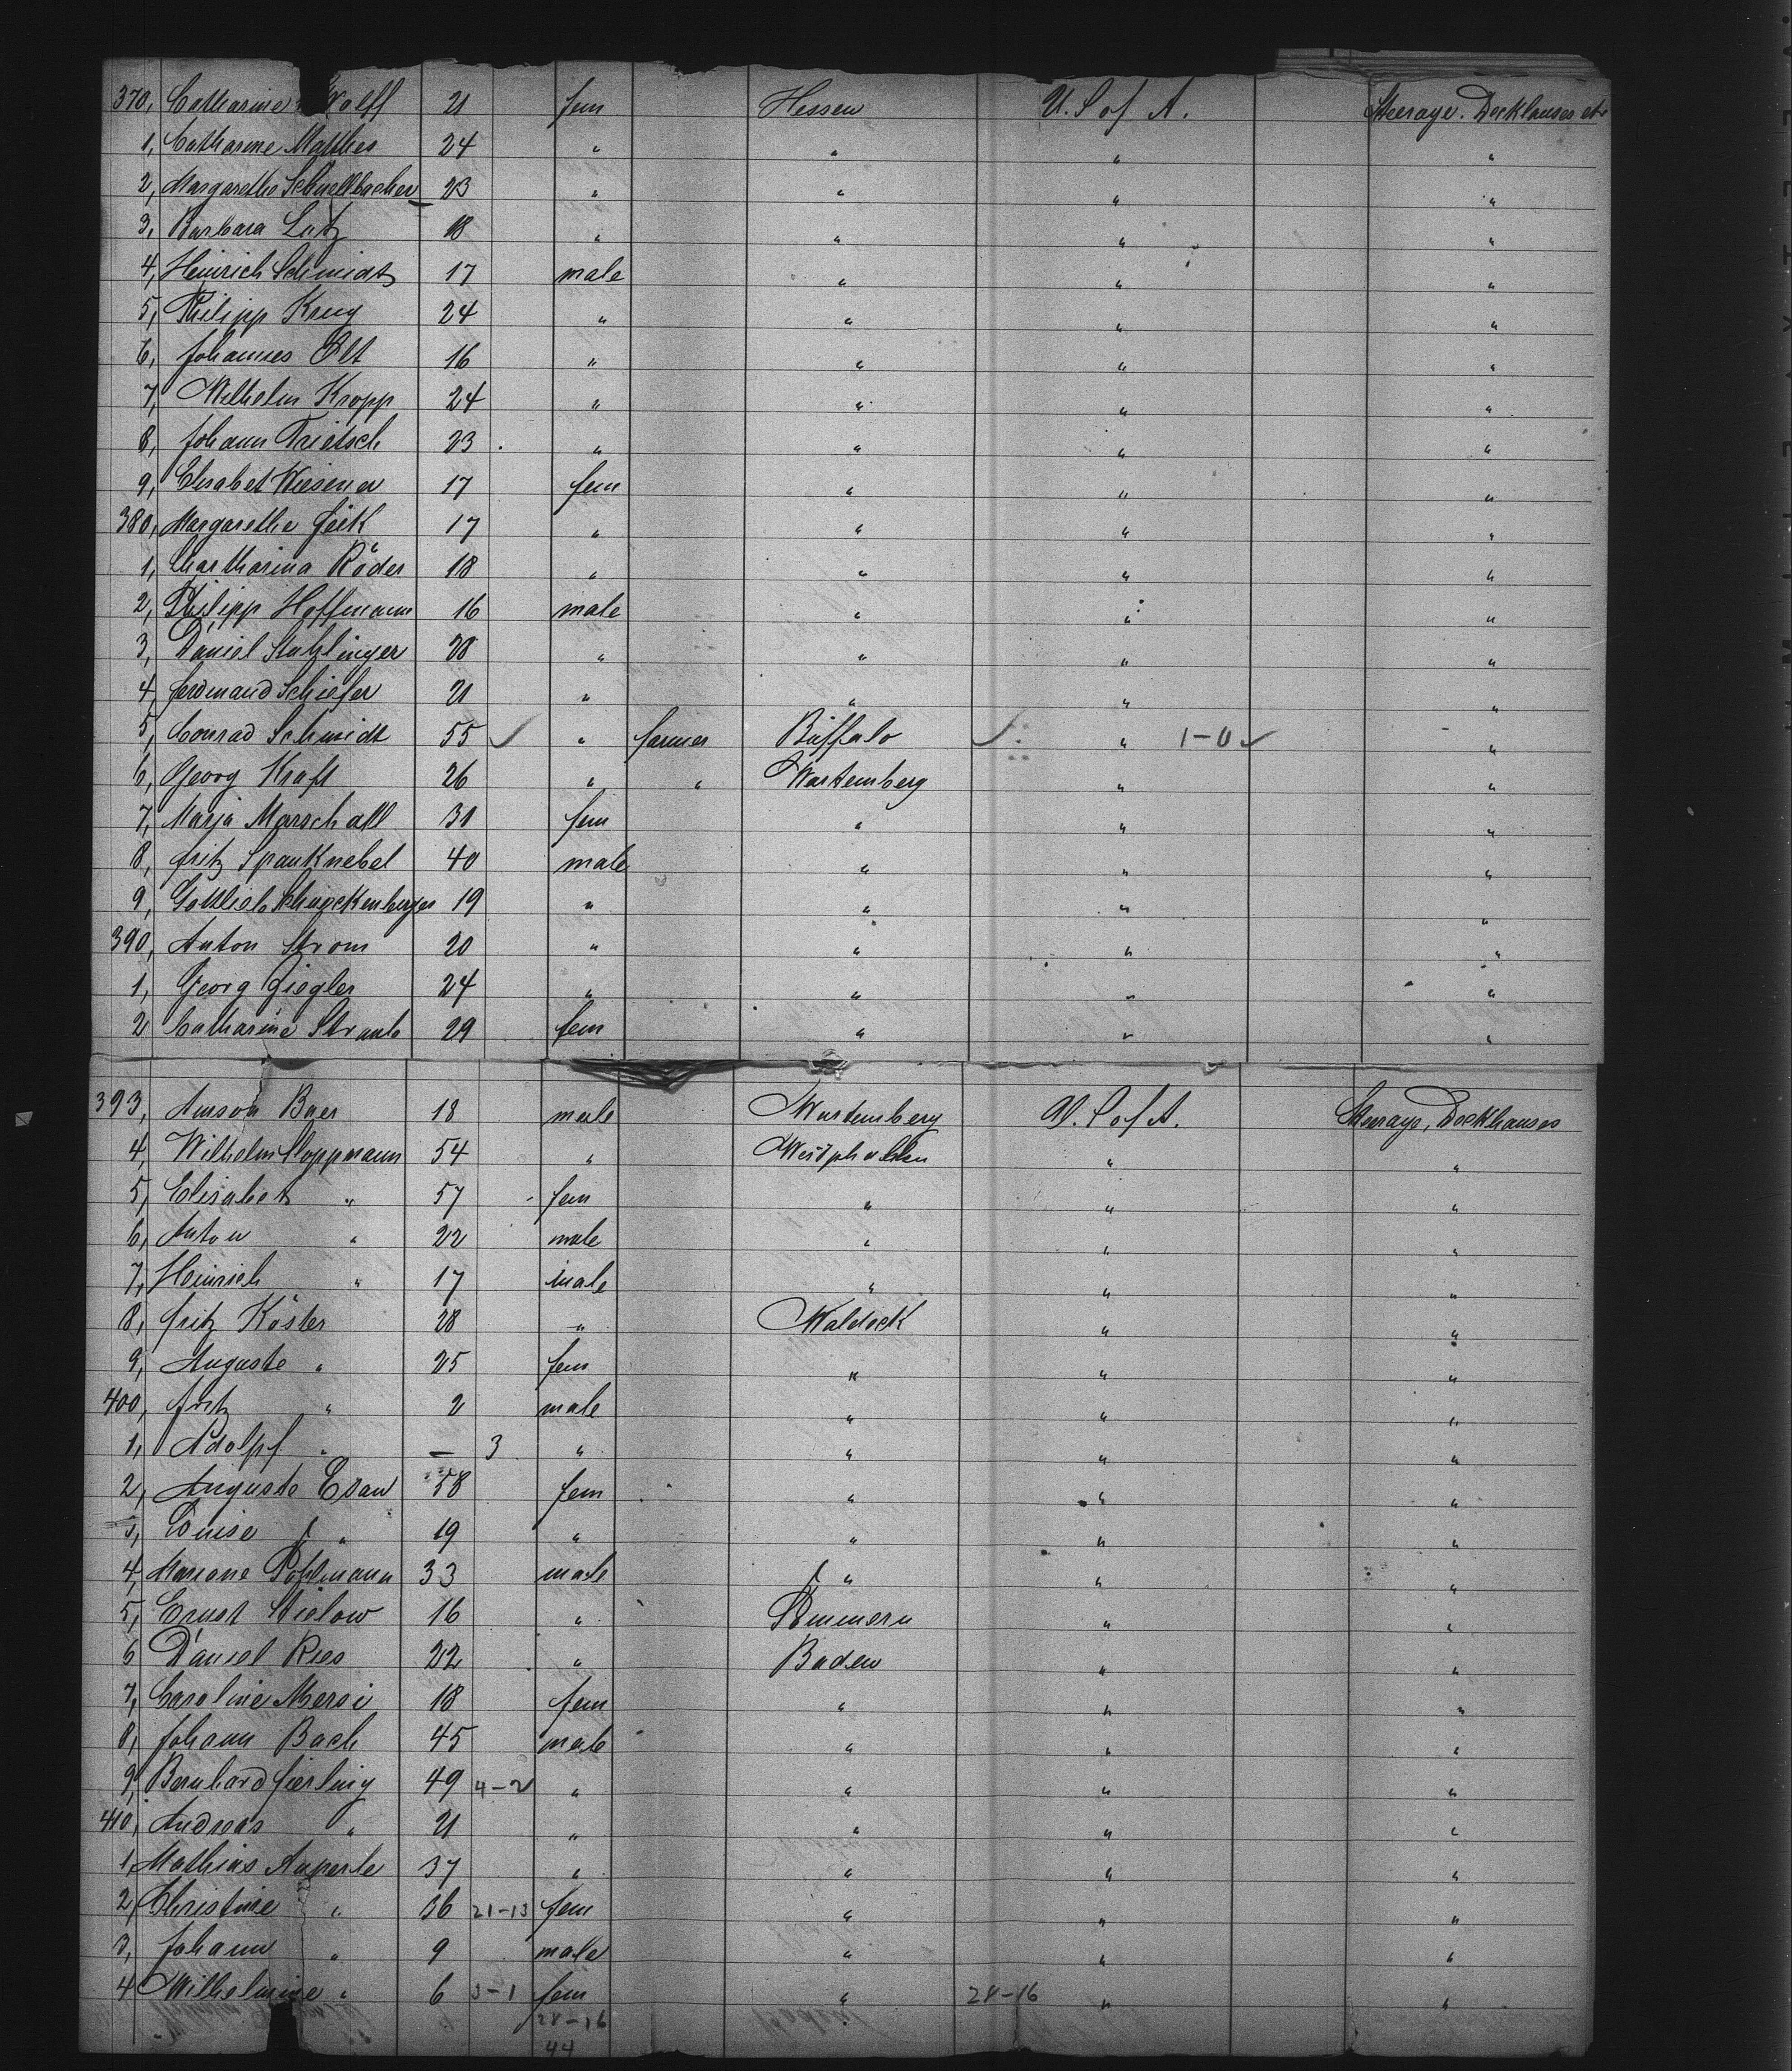 370, Catharine Wolff 21 fem Hessen U. S of A. Steerage. Deckhauses etc
1, Catharine Matthes 24 " " " "
2, Margarethe Schnellbacher 23 " " " "
3, Barbara Lutz 18 " " " "
4, Heinrich Schmidt 17 male " " "
5, Philipp Krug 24 " " " "
6, Johannes Olt 16 " " " "
7, Wilhelm Kropp 24 " " " "
8, Johann Trietsch 23 " " " "
9, Elisabet Wiesener 17 fem " " "
380, Margarethe Feik 17 " " " "
1, Chartharina Röder 18 " " " "
2, Philipp Hoffmann 16 male " " "
3, Daniel Stutzlinger 28 " " " "
4, Ferdinand Schiefer 21 " " " "
5, Conrad Schmidt 55 ✓ " farmer Buffalo ✓ " 1-0 ✓ "
6, Georg Kraft 26 " " Wurtemberg " "
7, Maria Marschall 31 fem " " "
8, Fritz Spanknebel 40 male " " "
9, Gottlieb Schneckenberger 19 " " " "
390, Anton Strom 20 " " " "
1, Georg Ziegler 24 " " " "
2 Catharine Straub 29 fem " " "
393, Amson Baer 18 male Wurtemberg U. S of A. Steerage, Deckhauses
4, Wilhelm Hoppmann 54 " Westphalen " "
5, Elisabet " 57 fem " " "
6, Anton " 22 male " " "
7, Heinrich " 17 male " " "
8, Fritz Köster 28 " Waldeck " "
9, Auguste " 25 fem " " "
400, Fritz " 2 male " " "
1, Adolpf " — 3 " " " "
2, Auguste Esau 58 fem " " "
3, Louise " 19 " " " "
4, Mariane Pohlmann 33 male " " "
5, Ernst Stielow 16 " Pommern " "
6 Daniel Ries 22 " Baden " "
7, Caroline Mersi 18 fem " " "
8, Johann Bach 45 male " " "
9, Bernhard Gierling 49 4-2 " " " "
410, Andreas " 21 " " " "
1, Mathias Auperle 37 " " " "
2, Christine " 36 21-13 fem " " "
3, Johann " 9 male " " "
4 Wilhelmine " 6 3-1 fem " 28-16 " "
28-16
44